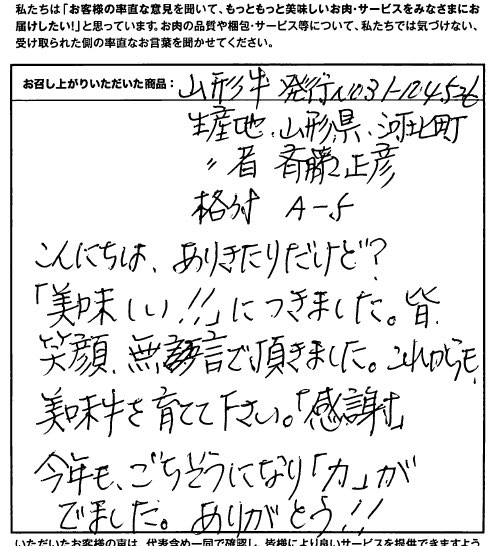 私たちは「お客様の率直な意見を聞いて、もっともっと美味しいお肉・サービスをみなさまにお
届けしたい!」と思っています。お肉の品質や梱包・サービス等について、私たちでは気づけない、
受け取られた側の率直なお言葉を聞かせてください。
お召し上がりいただいた商品: 山形牛 発行No31-124536
生産地、山形県、河北町
〃者 斉藤正彦
格付 A-5
こんにちは、ありきたりだけど?
「美味しい!!」につきました。皆、
笑顔、無言で頂きました。これからも、
美味牛を育てて下さい。「感謝」
今年も、ごちそうになり「力」が
でました。ありがとう!!
いただいたお客様の声は、代表含め一同で確認し、皆様により良いサービスを提供できますよう